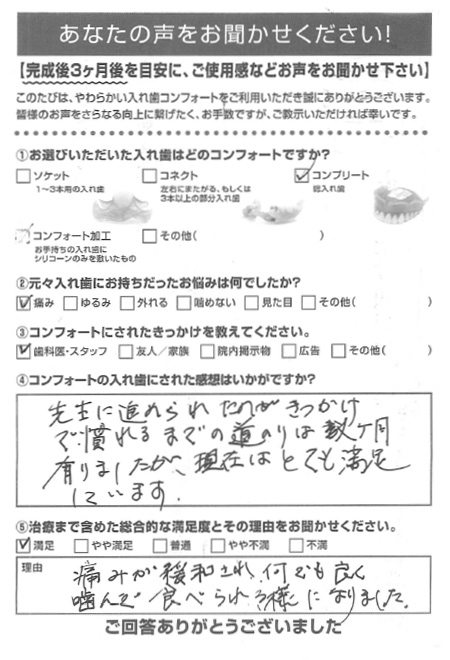 あなたの声をお聞かせください!
【完成後3ヶ月後を目安に、ご使用感などお声をお聞かせ下さい】
このたびは、やわらかい入れ歯コンフォートをご利用いただき誠にありがとうございます。
皆様のお声をさらなる向上に繋げたく、お手数ですが、ご教示いただければ幸いです。
①お選びいただいた入れ歯はどのコンフォートですか?
ソケット
1〜3本用の入れ歯
コネクト
左右にまたがる、もしくは
3本以上の部分入れ歯
コンプリート
総入れ歯
コンフォート加工
お手持ちの入れ歯に
シリコーンのみを敷いたもの
その他( )
②元々入れ歯にお持ちだったお悩みは何でしたか?
痛み ゆるみ 外れる 噛めない 見た目 その他( )
③コンフォートにされたきっかけを教えてください。
歯科医・スタッフ 友人/家族 院内掲示物 広告 その他( )
④コンフォートの入れ歯にされた感想はいかがですか?
先生に進められたのがきっかけ
で慣れるまでの道のりは数ケ月
有りましたが、現在はとても満足
しています.
⑤治療まで含めた総合的な満足度とその理由をお聞かせください。
満足 やや満足 普通 やや不満 不満
理由
痛みが緩和され何でも良く
噛んで食べられる様になりました.
ご回答ありがとうございました